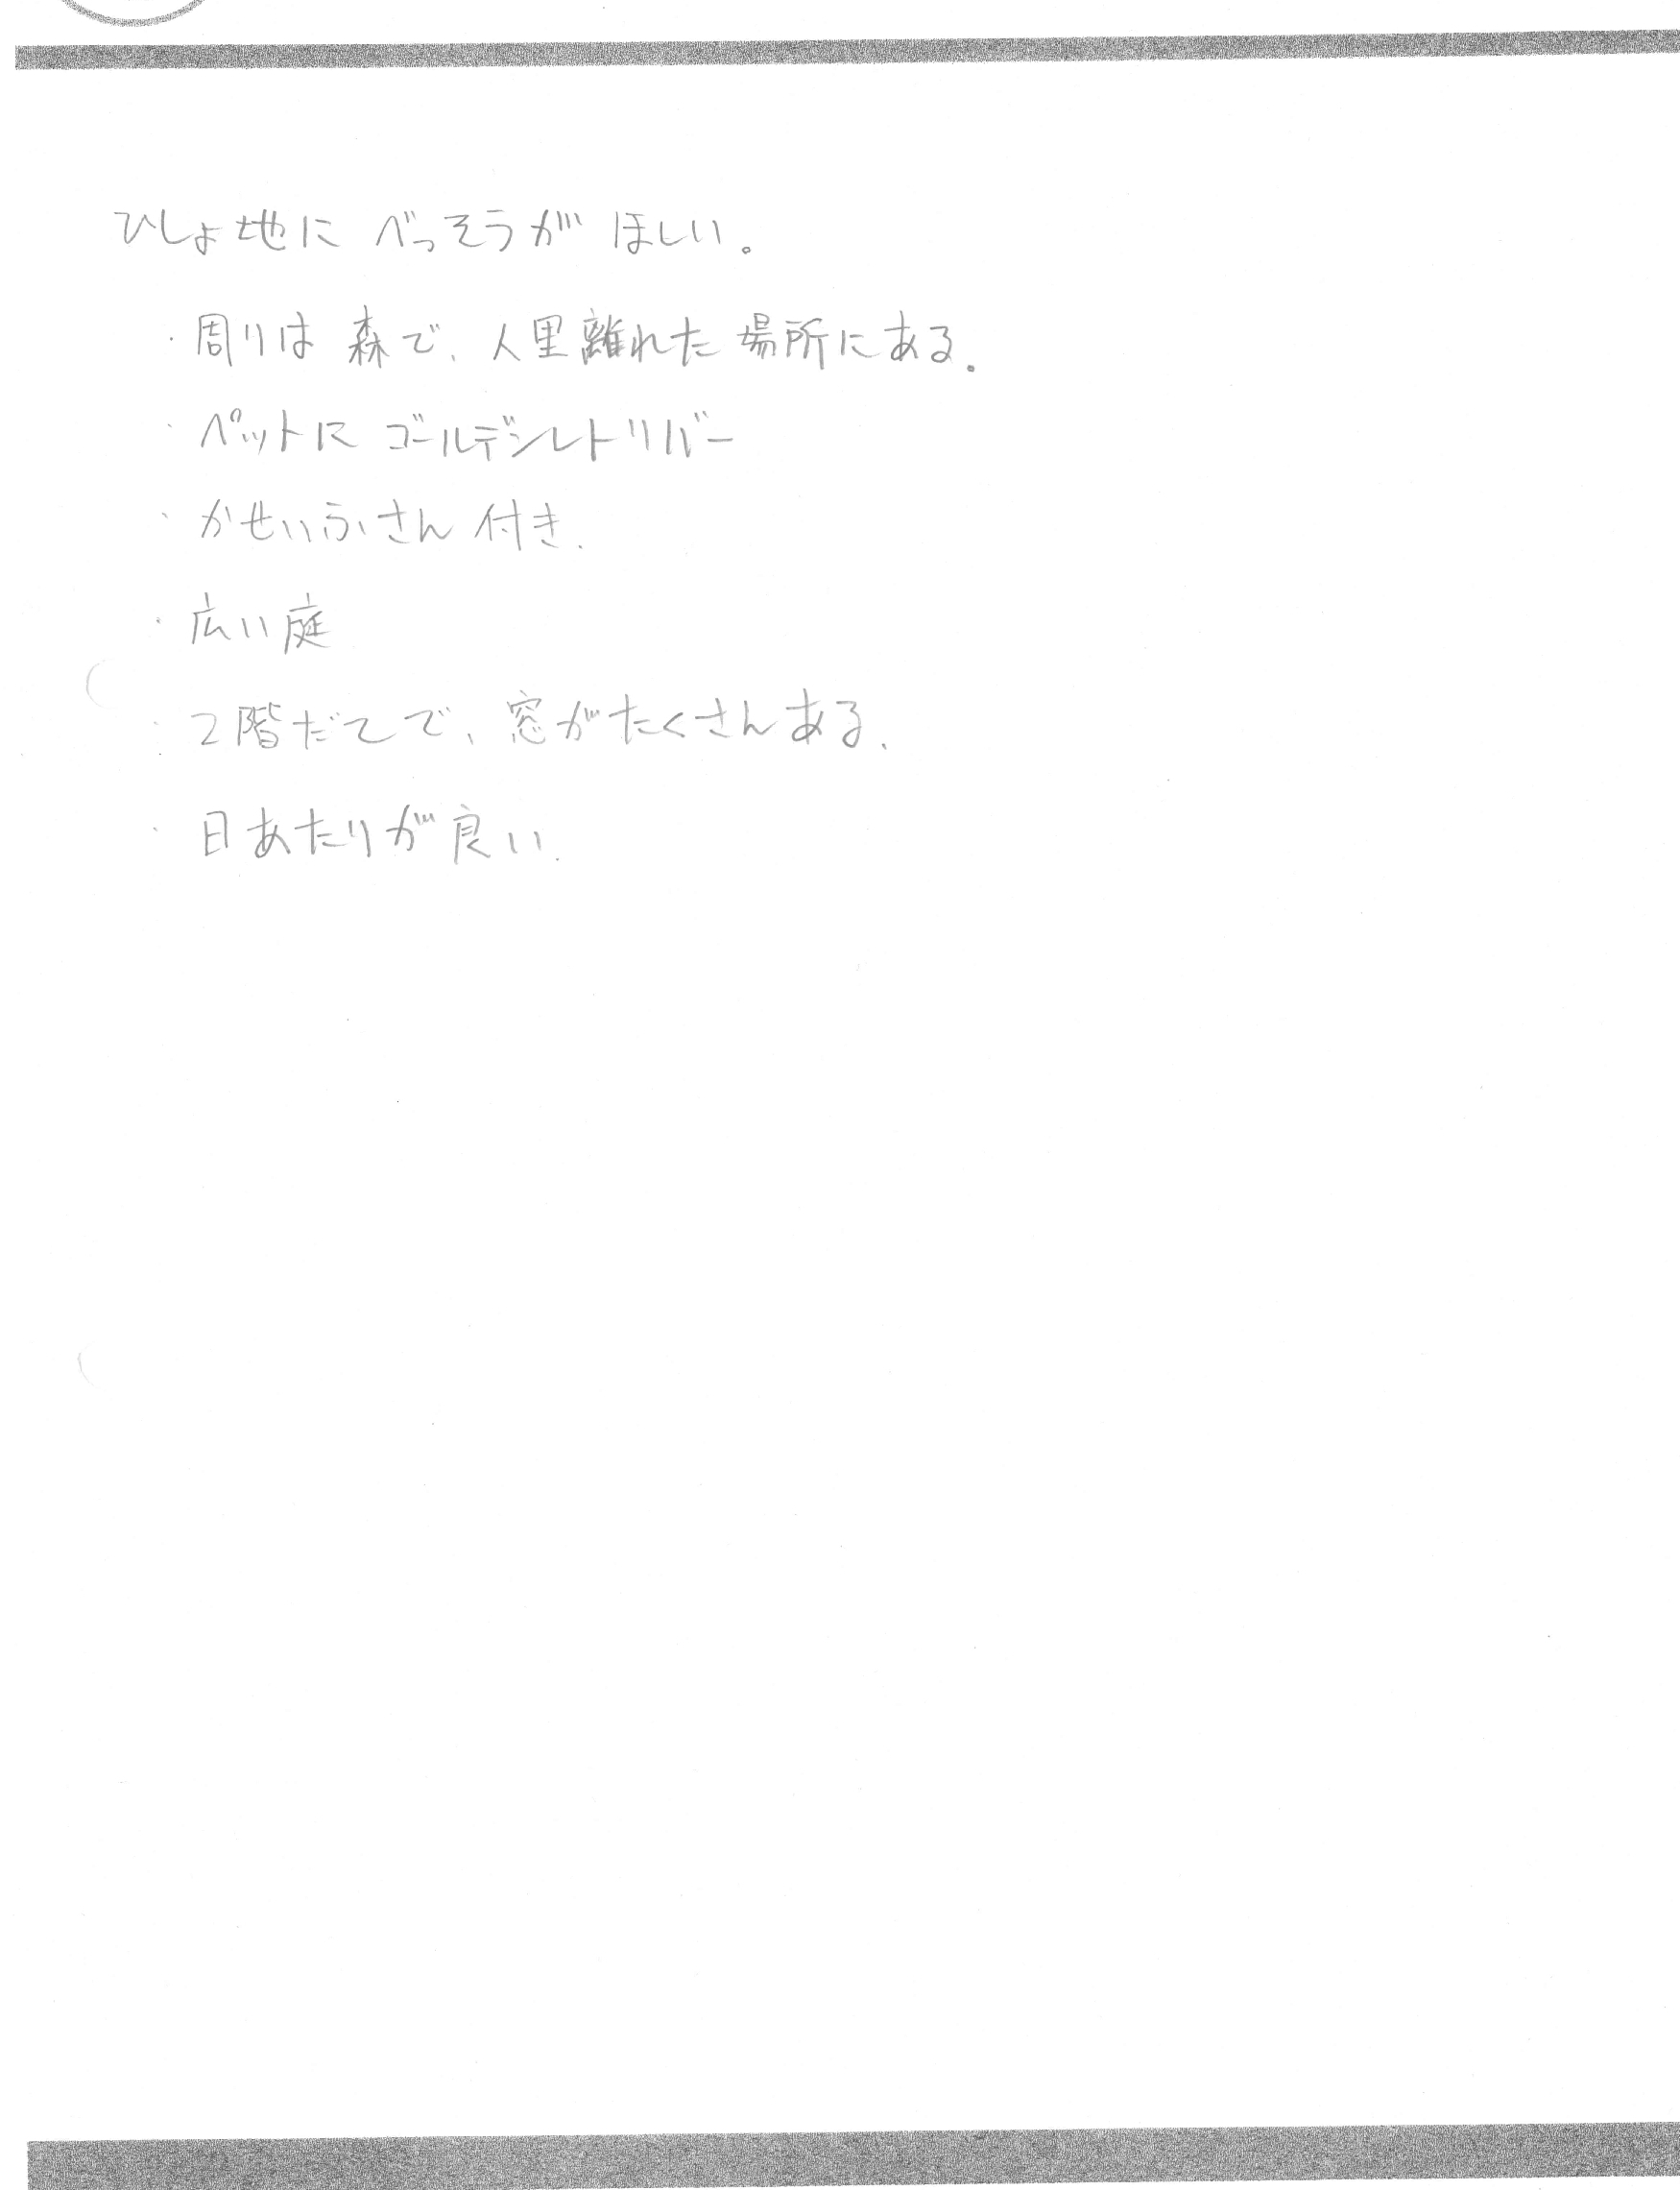 ひしょ地に べっそうが ほしい。
・周りは 森で、人里離れた 場所にある。
・ペットに ゴールデンレトリバー
・かせいふさん 付き.
・広い庭
・2階だてで、窓がたくさんある.
・日あたりが良い.